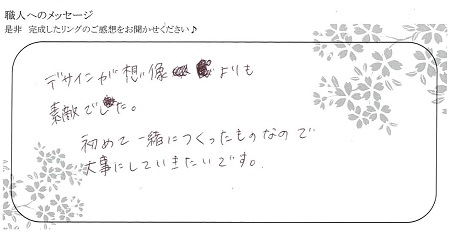 職人へのメッセージ
是非 完成したリングのご感想をお聞かせください♪
デザインが想像よりも
素敵でした。
初めて一緒につくったものなので
大事にしていきたいです。